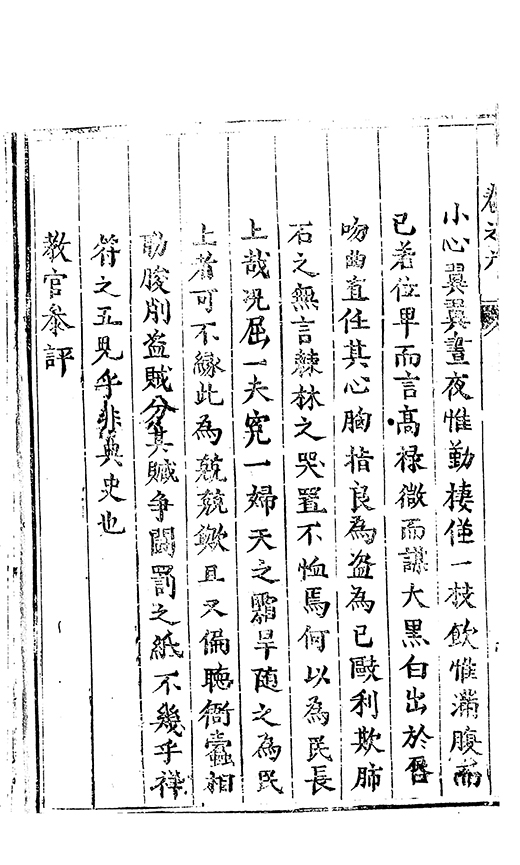 卷之六
小心翼翼晝夜惟勤棲僅一枝飲惟滿腹而
已若位卑而言高祿微而謀大黑白出於唇
吻曲直任其心胸指良為盗為已毆利欺肺
石之無言棘林之哭置不恤焉何以為民長
上哉况屈一夫寃一婦天之霜旱随之為民
上者可不緣此為兢兢歟且又偏聽衙蠹相
朘削盗賊分其贓争鬪罰之紙不幾乎
符之五見乎非典史也
教官叅評